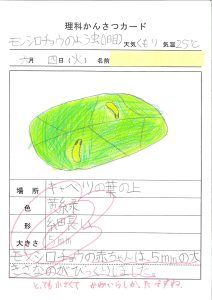 理科かんさつカード
モンシロチョウのよう虫(1日目)
天気 くもり 気温 25℃
六月 四日(火) 名前
場所 キャベツの葉の上
色 黄緑
形 細長い
大きさ 5mm
モンシロチョウの赤ちゃんは、5mmの大
きさなのでびっくりしました。
とても小さくてかわいらしかったですね。